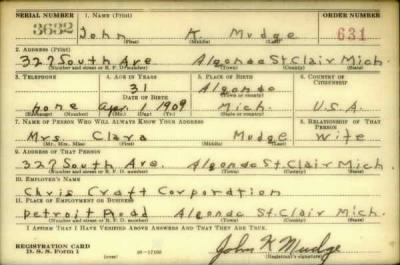 SERIAL NUMBER 1. NAME (Print) ORDER NUMBER
3632 John K. Mudge 631
(First) (Middle) (Last)
2. ADDRESS (Print)
327 South Ave Algonda St. Clair Mich.
(Number and street or R. F. D. number) (Town) (County) (State)
3. TELEPHONE 4. AGE IN YEARS 5. PLACE OF BIRTH 6. COUNTRY OF CITIZENSHIP
31 Algonda
DATE OF BIRTH (Town or county)
none Apr 1 1909 Mich. U.S.A.
(Exchange) (Number) (Mo.) (Day) (Yr.) (State or country)
7. NAME OF PERSON WHO WILL ALWAYS KNOW YOUR ADDRESS 8. RELATIONSHIP OF THAT PERSON
Mrs. Clara Mudge Wife
(Mr., Mrs., Miss) (First) (Middle) (Last)
9. ADDRESS OF THAT PERSON
327 South Ave. Algonda St. Clair Mich.
(Number and street or R. F. D. number) (Town) (County) (State)
10. EMPLOYER'S NAME
Chris Craft Corporation
11. PLACE OF EMPLOYMENT OR BUSINESS
Detroit Road Algonda St. Clair Mich.
(Number and street or R. F. D. number) (Town) (County) (State)
I AFFIRM THAT I HAVE VERIFIED ABOVE ANSWERS AND THAT THEY ARE TRUE.
REGISTRATION CARD John K Mudge
D. S. S. Form 1 (over) 16-17105 (Registrant's signature)